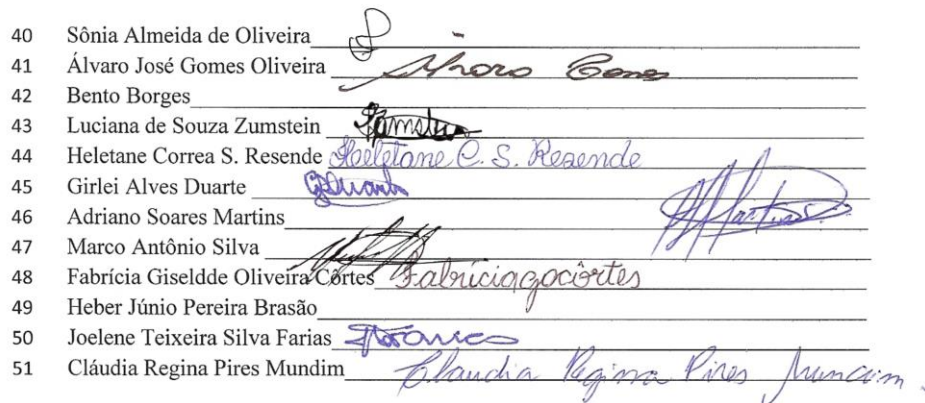 40 Sônia Almeida de Oliveira
41 Álvaro José Gomes Oliveira Álvaro Gomes
42 Bento Borges
43 Luciana de Souza Zumstein
44 Heletane Correa S. Resende Heletane C. S. Resende
45 Girlei Alves Duarte GDuarte
46 Adriano Soares Martins Martins
47 Marco Antônio Silva
48 Fabrícia Giseldde Oliveira Côrtes Fabríciagocôrtes
49 Heber Júnio Pereira Brasão
50 Joelene Teixeira Silva Farias
51 Cláudia Regina Pires Mundim Claudia Regina Pires Mundim